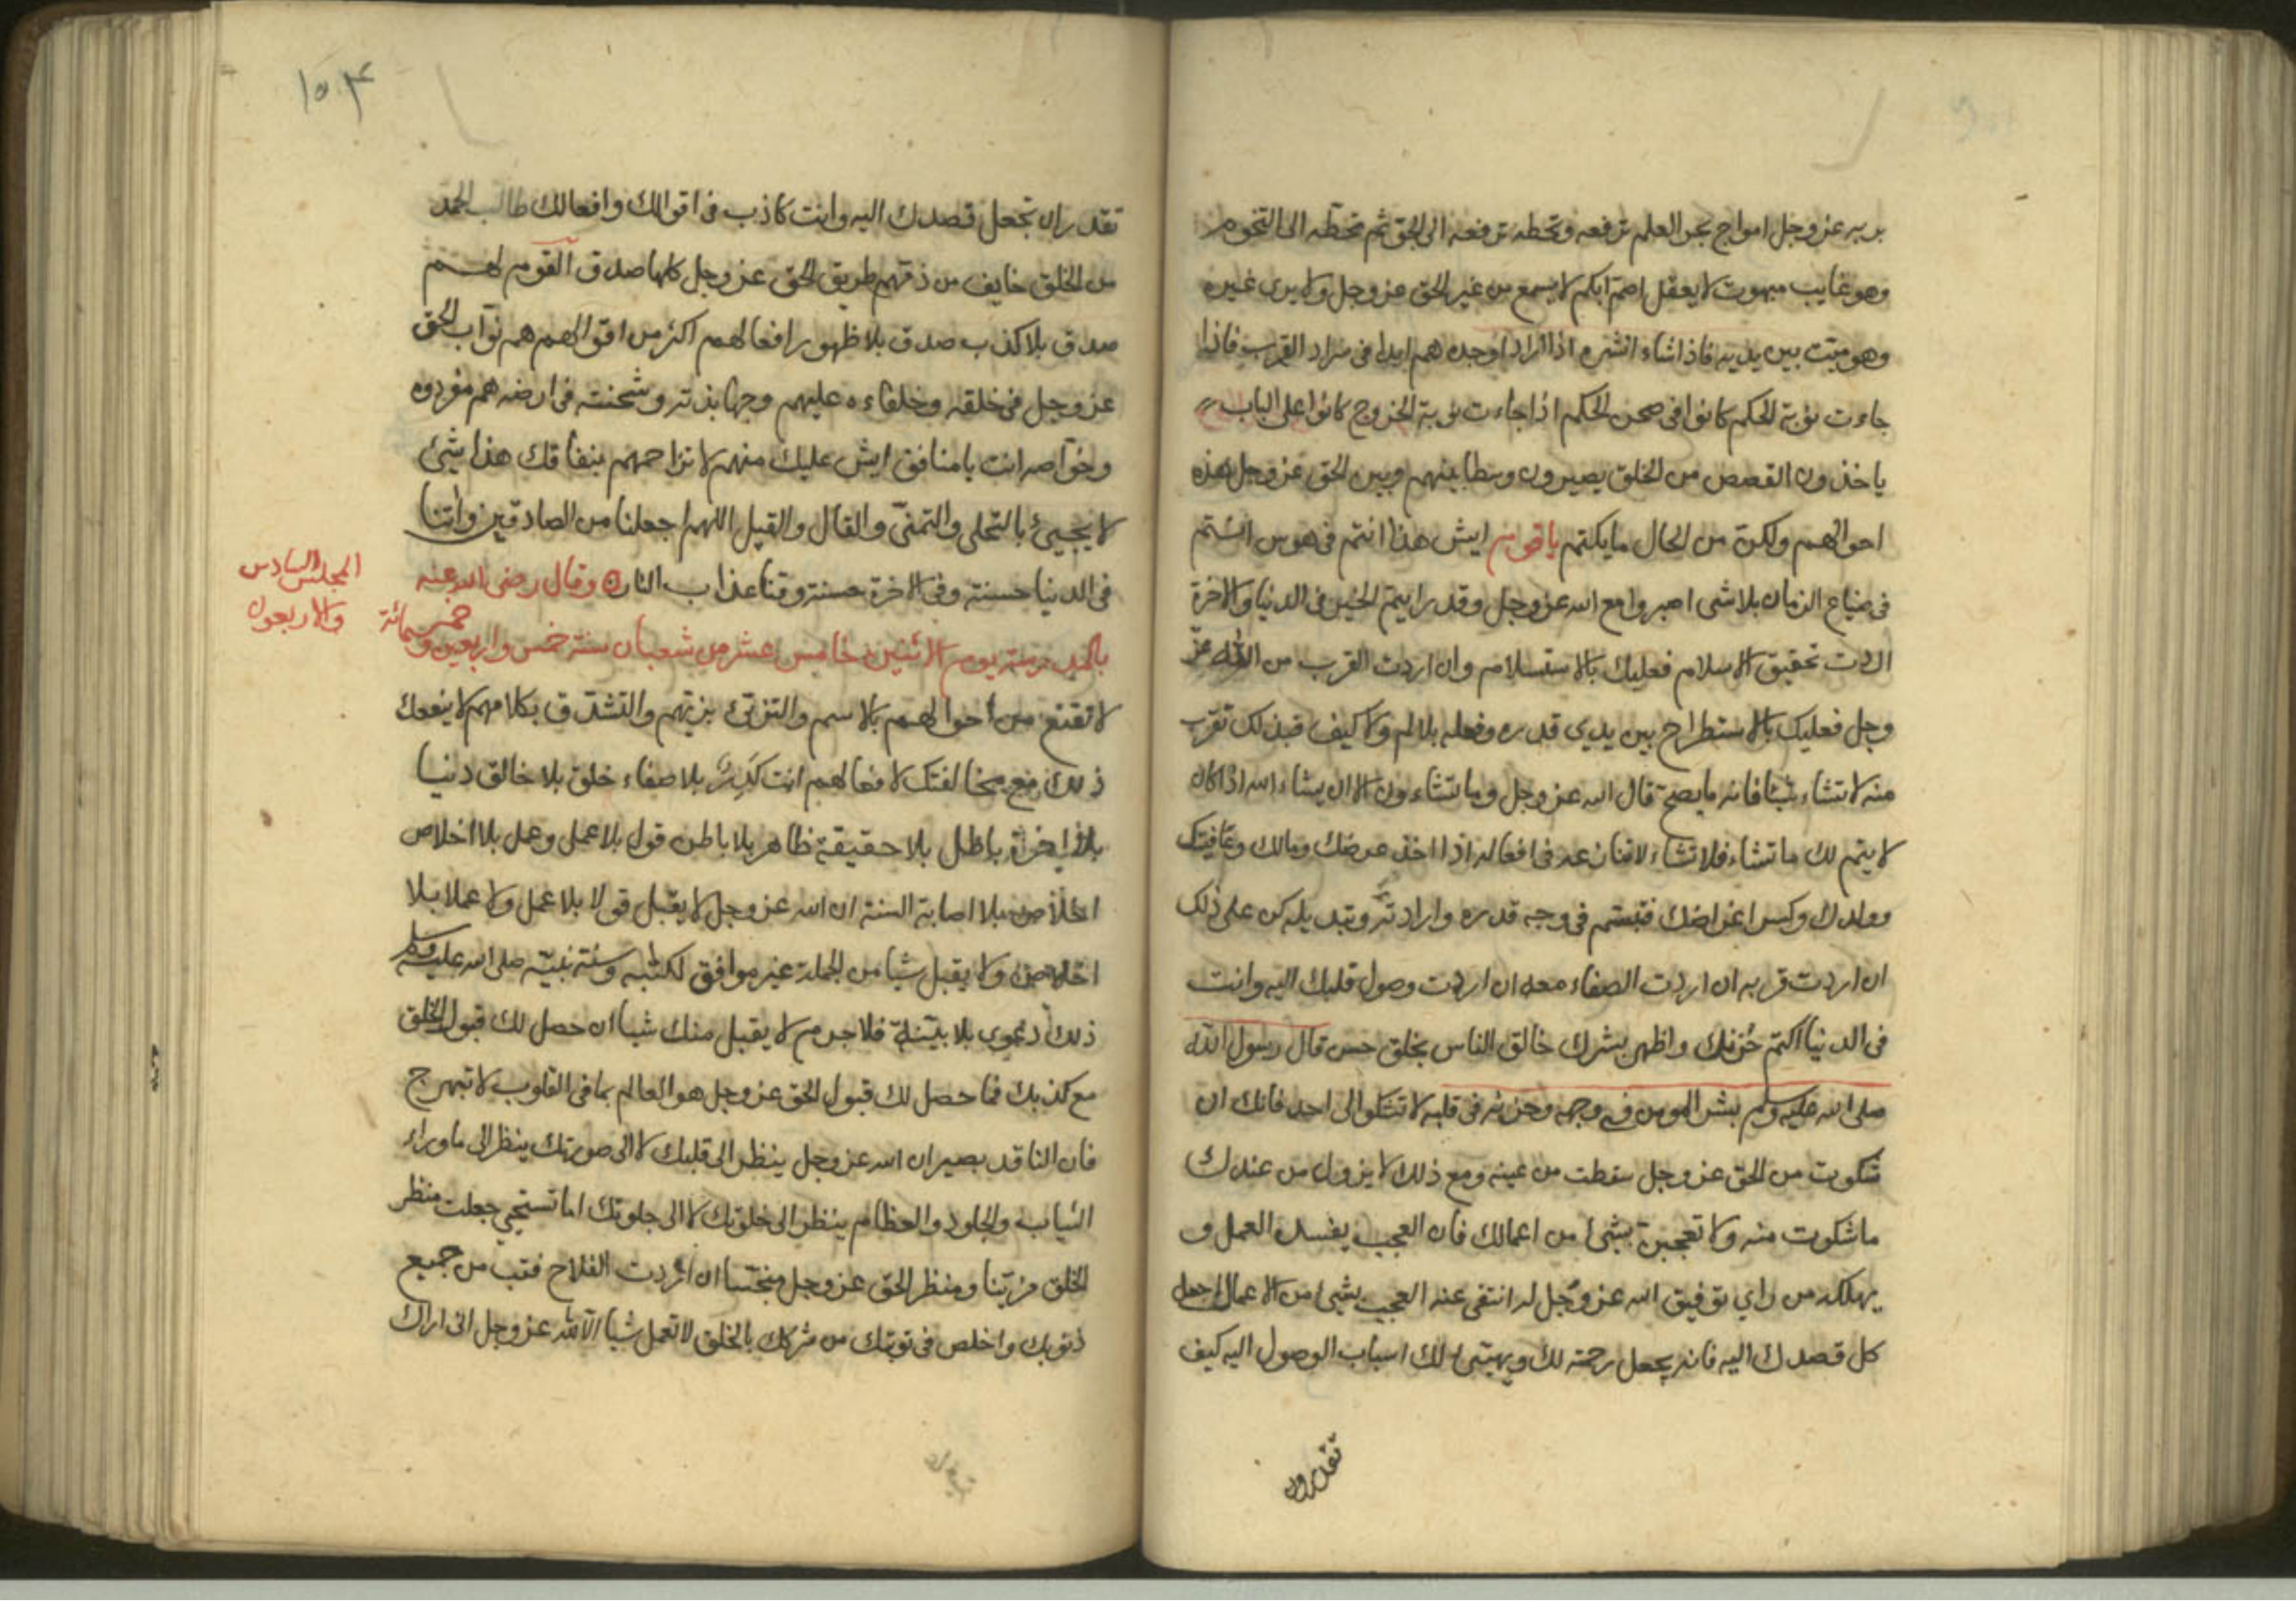 بربه عز وجل امواج بحر العلم ترفعه وتحطه ترفعه الى الجو ثم تحطه الى التخوم
وهو غايب مبهوت لا يعقل اصم ابكم لا يسمع من غير الحق عز وجل ولا يرى غيره
وهو ميت بين يديه فاذا شاء انشره اذا اراد اوجده هم ابدا في سراد القرب فاذا
جاءت نوبة الحكم كانوا في صحن الحكم اذا جاءت نوبة الخروج كانوا على الباب
ياخذون القصص من الخلق يصيرون وسطا بينهم وبين الحق عز وجل هذه
احوالهم ولكن من الحال ما يكتم يا قوم ايش هذا انتم في هوس انتم
في ضياع الزمان بلا شي اصبروا مع الله عز وجل وقد رايتم الخير في الدنيا والاخرة
اردت تحقيق الاسلام فعليك بالاستسلام وان اردت القرب من الله عز
وجل فعليك بالاستطراح بين يدي قدره وفعله بلا لم ولا كيف فبذلك تقرب
منه لا تشاء شيئا فانه ما يصح قال الله عز وجل وما تشاءون الا ان يشاء الله اذا كان
لا يتم لك ما تشاء فلا تشاء لا تنازعه في افعاله اذا اخذ عرضك ومالك وعافيتك
وولدك وكسر اغراضك فتبسم في وجه قدره وارادته وتبديله كن على ذلك
ان اردت قربه ان اردت الصفاء معه ان اردت وصول قلبك اليه وانت
في الدنيا اكتم حزنك واظهر بشرك خالق الناس بخلق حسن قال رسول الله
صلى الله عليه وسلم بشر المومن في وجهه وحزنه في قلبه لا تشكوا الى احد فانك ان
شكوت من الحق عز وجل سقطت من عينه ومع ذلك لا يزول من عندك
ما شكوت منه ولا تعجبن بشئ من اعمالك فان العجب يفسد العمل و
يهلكه من راي توفيق الله عز وجل له انتفى عنه العجب بشئ من الاعمال اجعل
كل قصدك اليه فانه يجعل رحمته لك ويهيئ لك اسباب الوصول اليه كيف
تقدر ان
١٥٣
تقدر ان تجعل قصدك اليه وانت كاذب في اقوالك وافعالك طالب لحمد
من الخلق خايف من ذمهم طريق الحق عز وجل كلها صدق القوم لهم
صدق بلا كذب صدق بلا ظهور افعالهم اكثر من اقوالهم هم نواب الحق
عز وجل في خلقه وخلفاءه عليهم وجهابذته وشحنته في ارضه هم مفردوه
وخواصه انت يا منافق ايش عليك منهم لا تزاحمهم بنفاقك هذا شئ
لا يجيئ بالتحلي والتمني والقال والقيل اللهم اجعلنا من الصادقين واتنا
في الدنيا حسنة وفي الاخرة حسنة وقنا عذاب النار وقال رضى الله عنه
المجلس السادس
والاربعون
بالمدرسة يوم الاثنين خامس عشر من شعبان سنة خمس واربعين وخمسمائة
لا تقنع من احوالهم بالاسم والتزيئ بزيهم والتشدق بكلامهم لا ينفعك
ذلك مع مخالفتك لافعالهم انت كدر بلا صفاء خلق بلا خالق دنيا
بلا اخرة باطل بلا حقيقة ظاهر بلا باطن قول بلا عمل وعمل بلا اخلاص
اخلاص بلا اصابة السنة ان الله عز وجل لا يقبل قولا بلا عمل ولا عملا بلا
اخلاص ولا يقبل شيا من الجملة غير موافق لكتابه وسنة نبيه صلى الله عليه وسلم
ذلك دعوى بلا بينة فلا جرم لا يقبل منك شيا ان حصل لك قبول الخلق
مع كذبك فما حصل لك قبول الحق عز وجل هو العالم بما في القلوب لا تبهرج
فان الناقد بصير ان الله عز وجل ينظر الى قلبك لا الى صورتك ينظر الى ما وراء
الثياب والجلود والعظام ينظر الى خلوتك لا الى جلوتك اما تستحيي جعلت منظر
الخلق مزينا ومنظر الحق عز وجل منجسا ان اردت الفلاح فتب من جميع
ذنوبك واخلص في توبتك من شركك بالخلق لا تعمل شيا الا لله عز وجل انى اراك